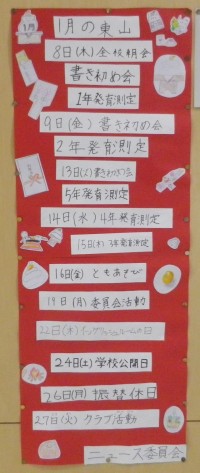 1月
1月の東山
8日(木)全校朝会
書き初め会
1年発育測定
9日(金)書き初め会
2年発育測定
13日(火)書きぞめ会
5年発育測定
14日(水)4年発育測定
15日(木)3年発育測定
16日(金)ともあそび
19日(月)委員会活動
22日(木)イングリッシュルームの日
24日(土)学校公開日
26日(月)振替休日
27日(火)クラブ活動
ニュース委員会